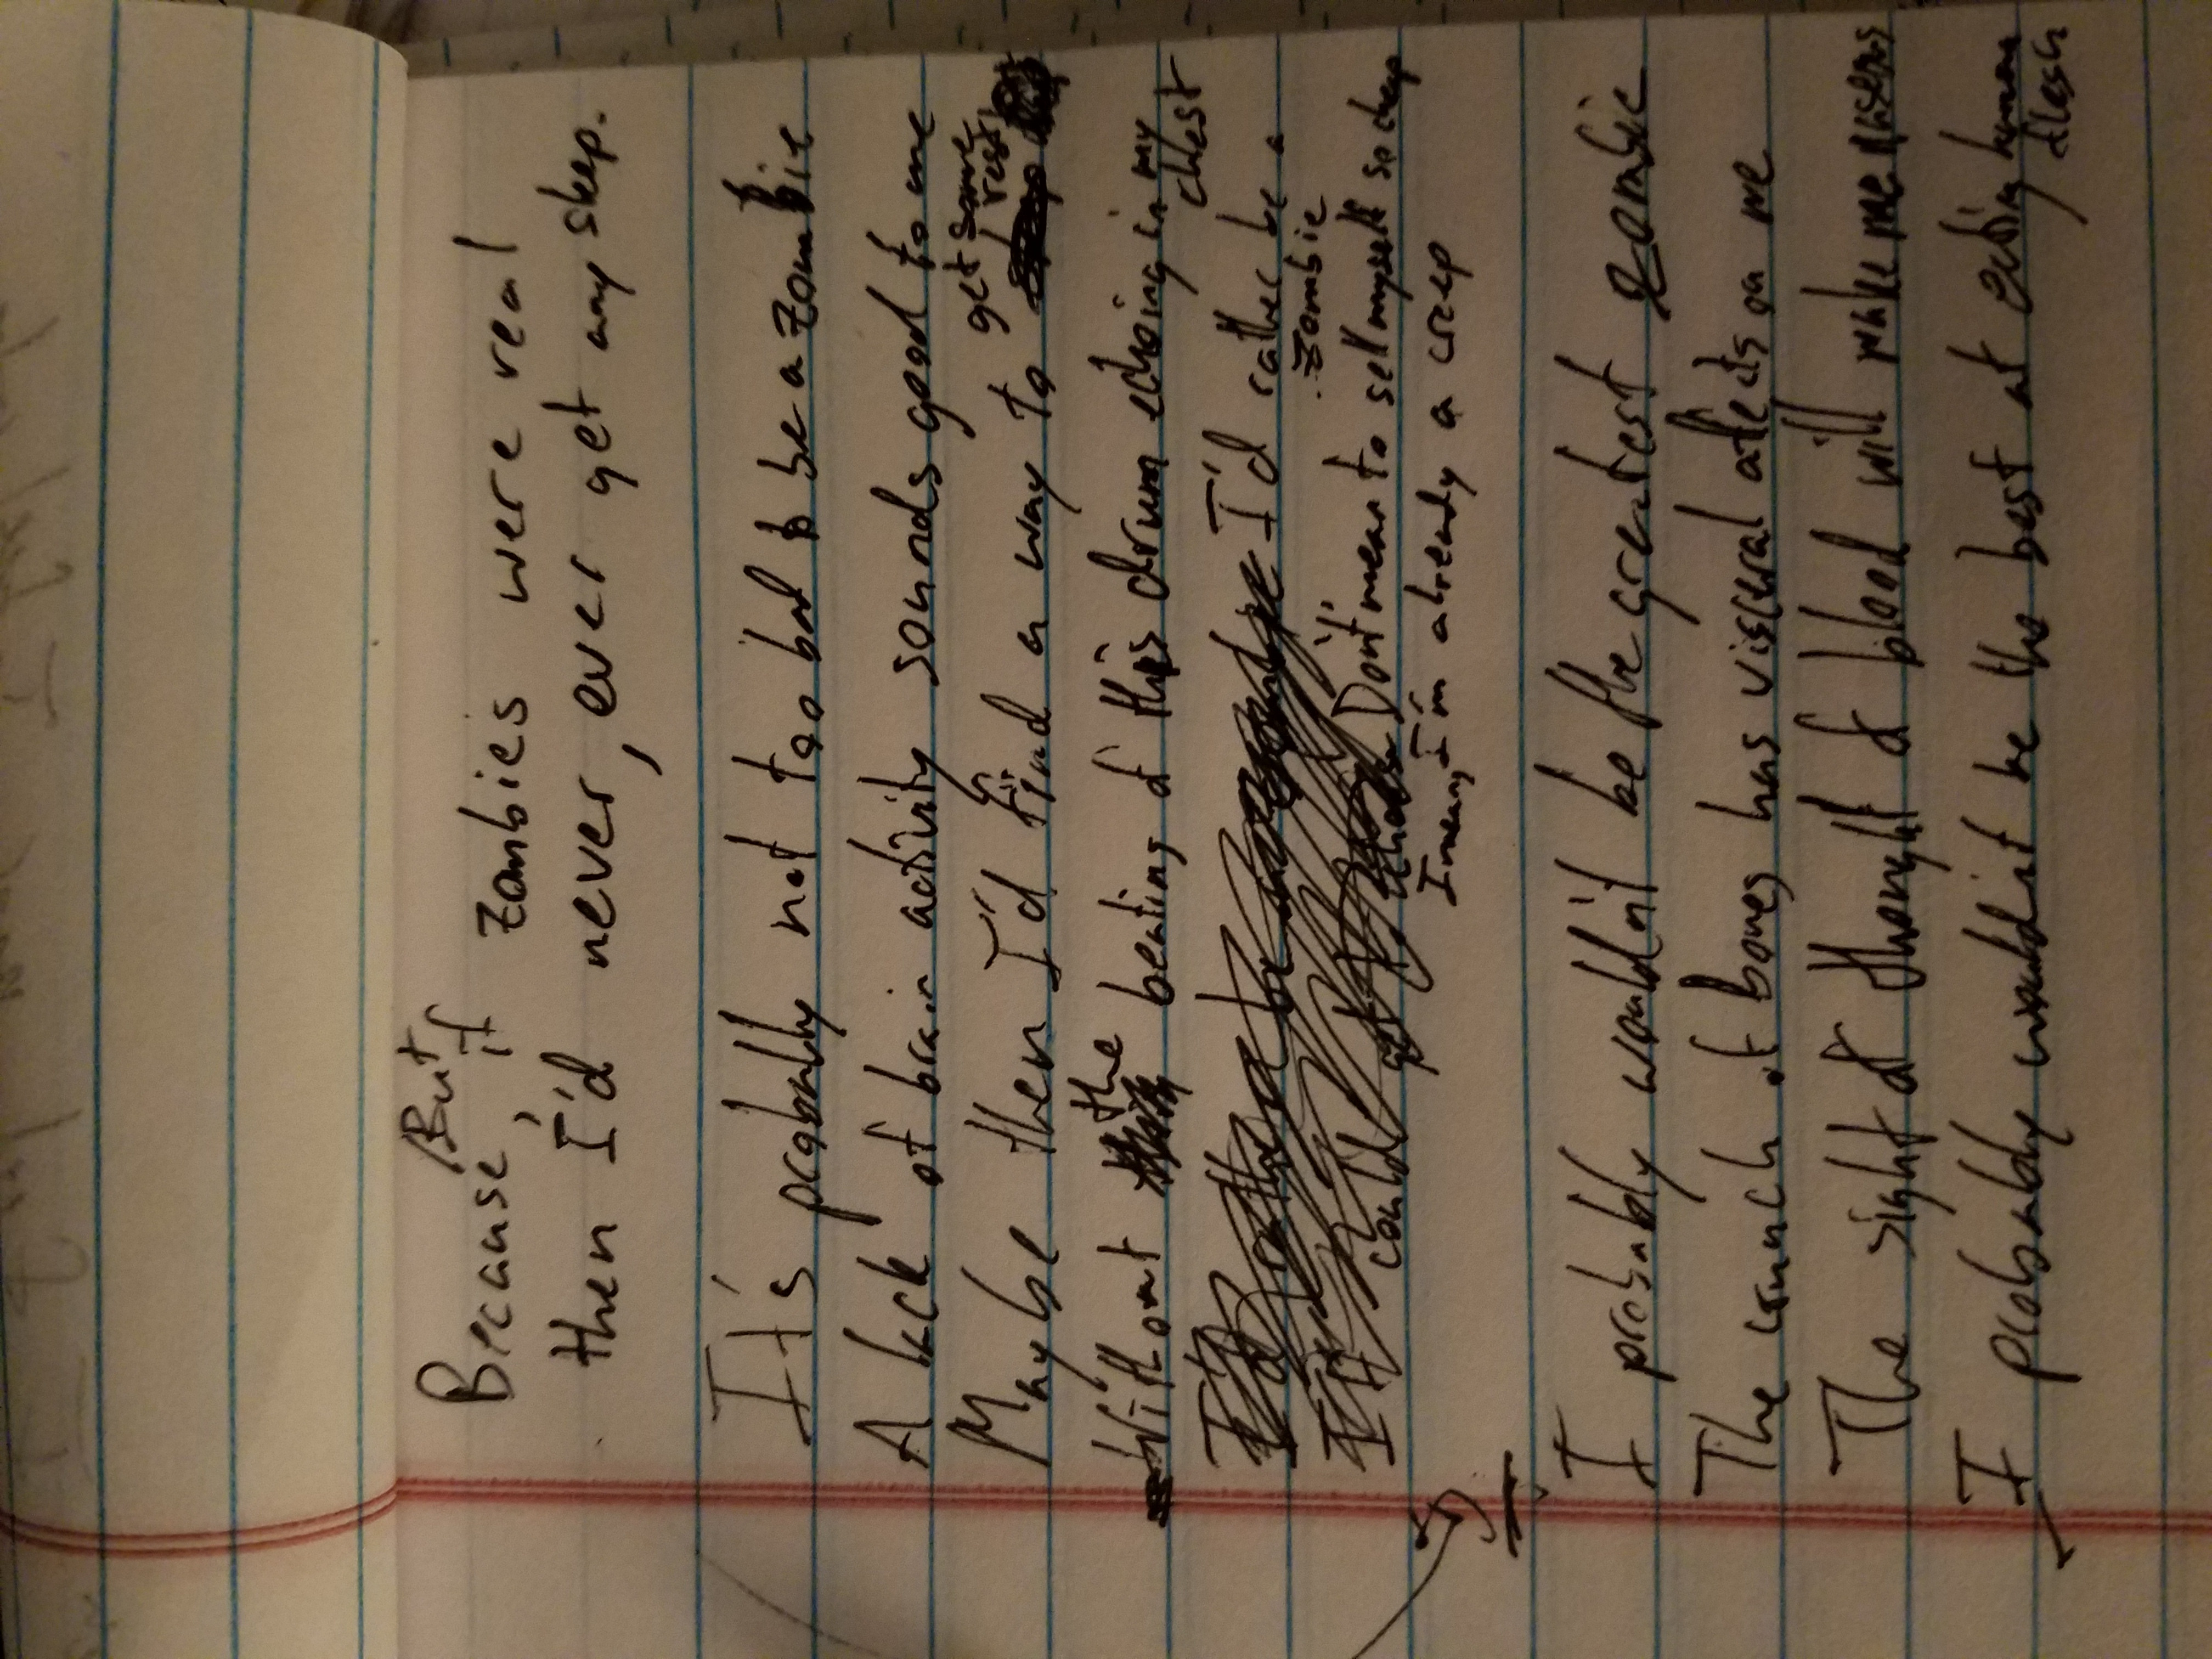 Because/But, if zombies were real
then I'd never, ever get any sleep.
It's probably not too bad to be a zombie
A lack of brain activity sounds good to me
Maybe then I'd find a way to get some rest
Without the beating of this drum echoing in my chest
I'd rather be a zombie
Don't mean to sell myself so cheap
I mean, I'm already a creep
I probably wouldn't be the greatest zombie
The crunch of bones has visceral affects on me
The sight of thought of blood will make me naseous
I probably wouldn't be the best at eating human flesh